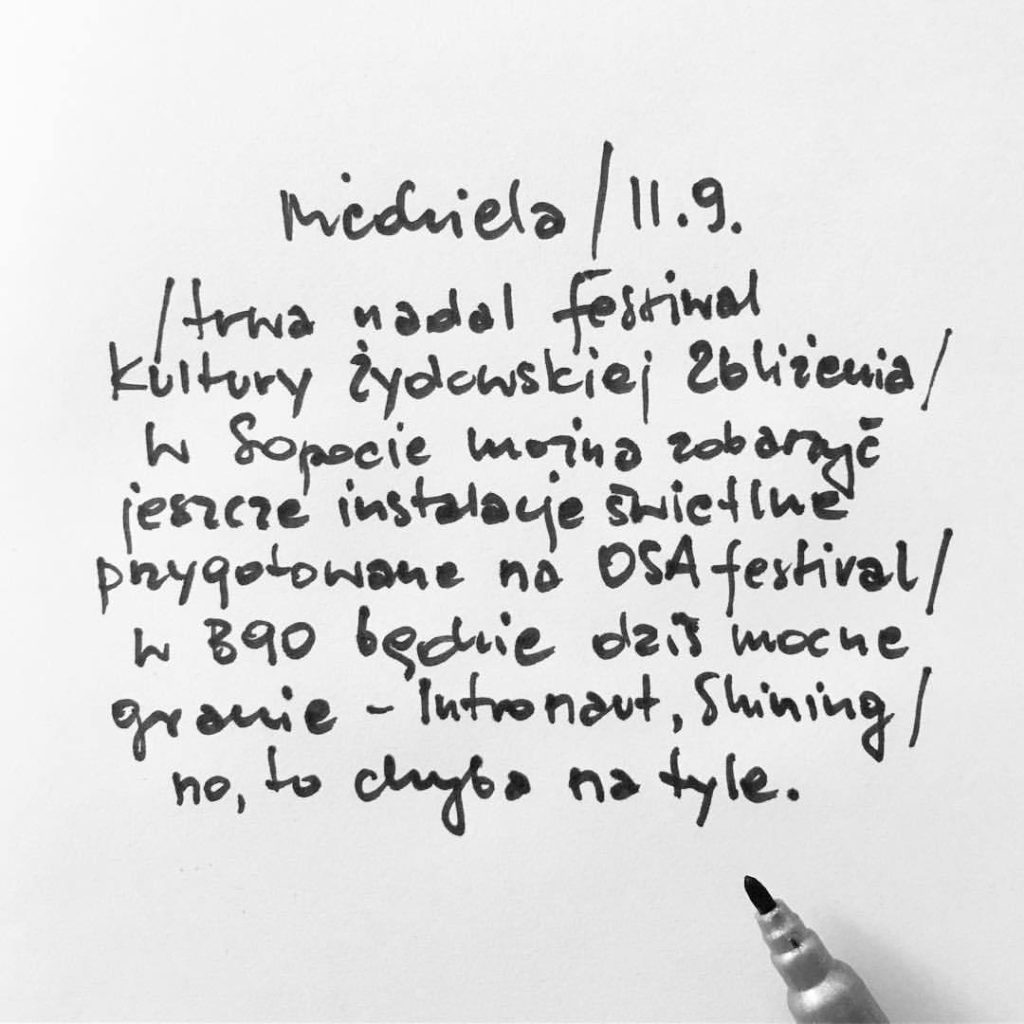 niedziela / 11.9.
/ trwa nadal festiwal
kultury żydowskiej Zbliżenia /
w Sopocie można zobaczyć
jeszcze instalacje świetlne
przygotowane na OSA festival /
w B90 będzie dziś mocne
granie - Intronaut, Shining /
no, to chyba na tyle.